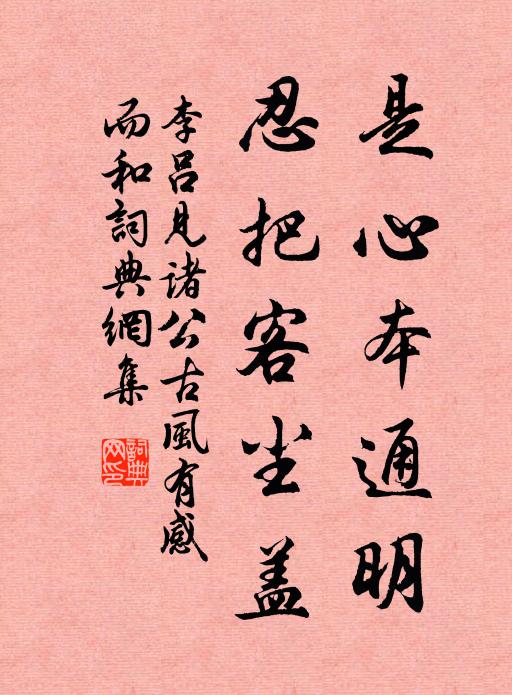 是心本通明
忍把客尘盖
李吕見諸公古風有感
而和詞典網集
詞典网印